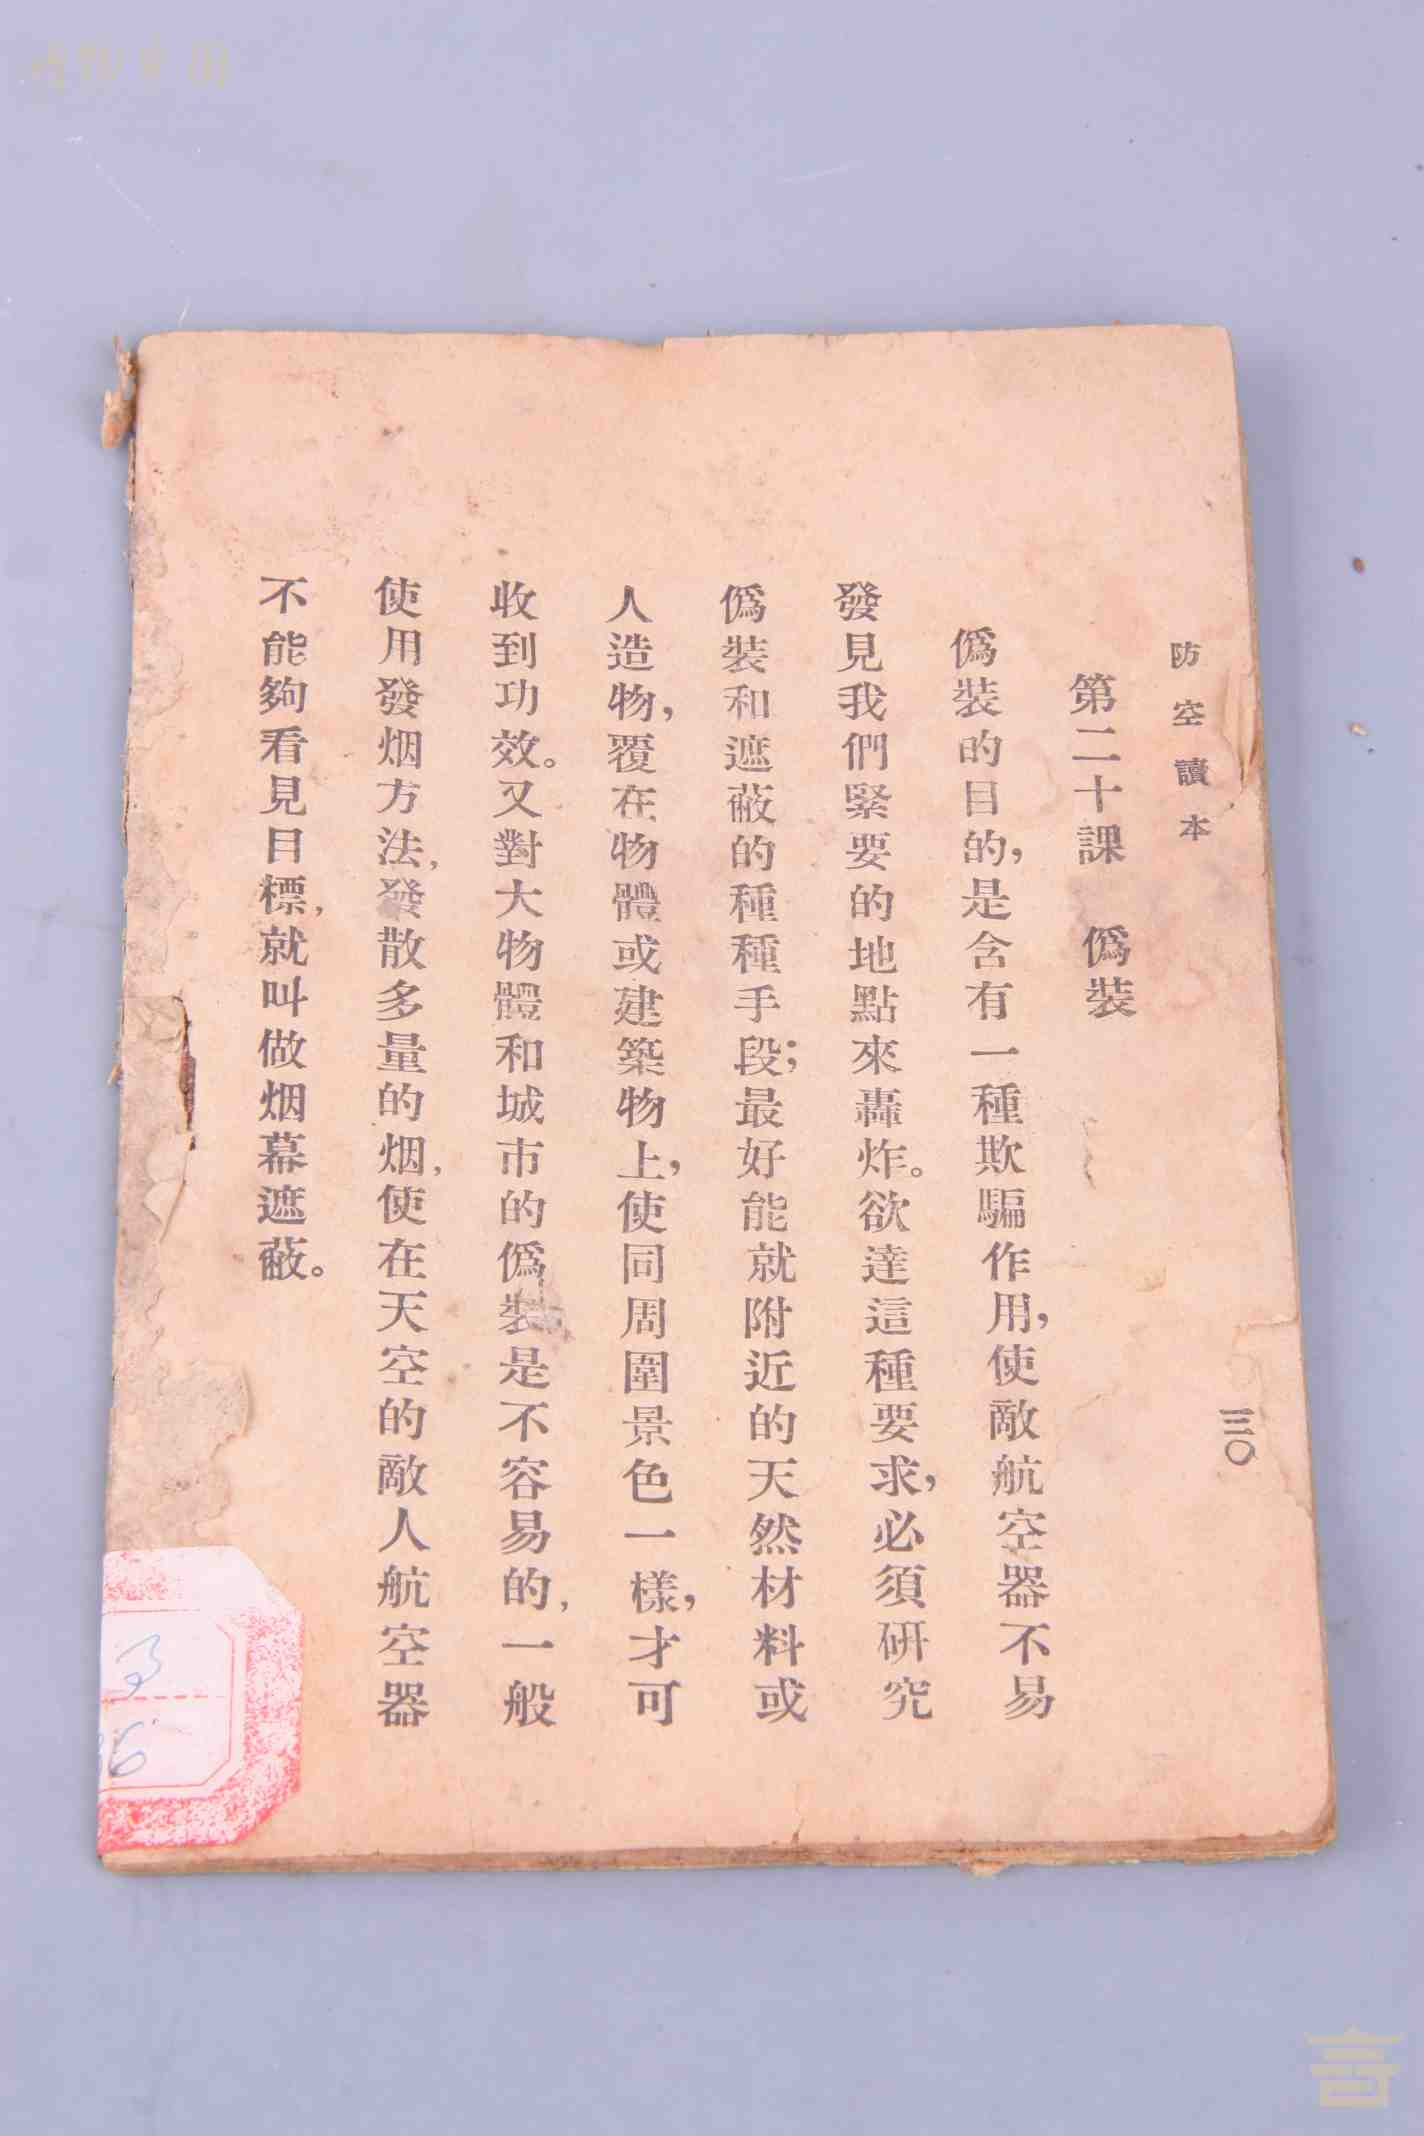 防空讀本
三〇
第二十課　偽裝
偽裝的目的，是含有一種欺騙作用，使敵航空器不易
發見我們緊要的地點來轟炸。欲達這種要求，必須研究
偽裝和遮蔽的種種手段；最好能就附近的天然材料或
人造物，覆在物體或建築物上，使同周圍景色一樣，才可
收到功效。又對大物體和城市的偽裝是不容易的，一般
使用發烟方法，發散多量的烟，使在天空的敵人航空器
不能夠看見目標，就叫做烟幕遮蔽。